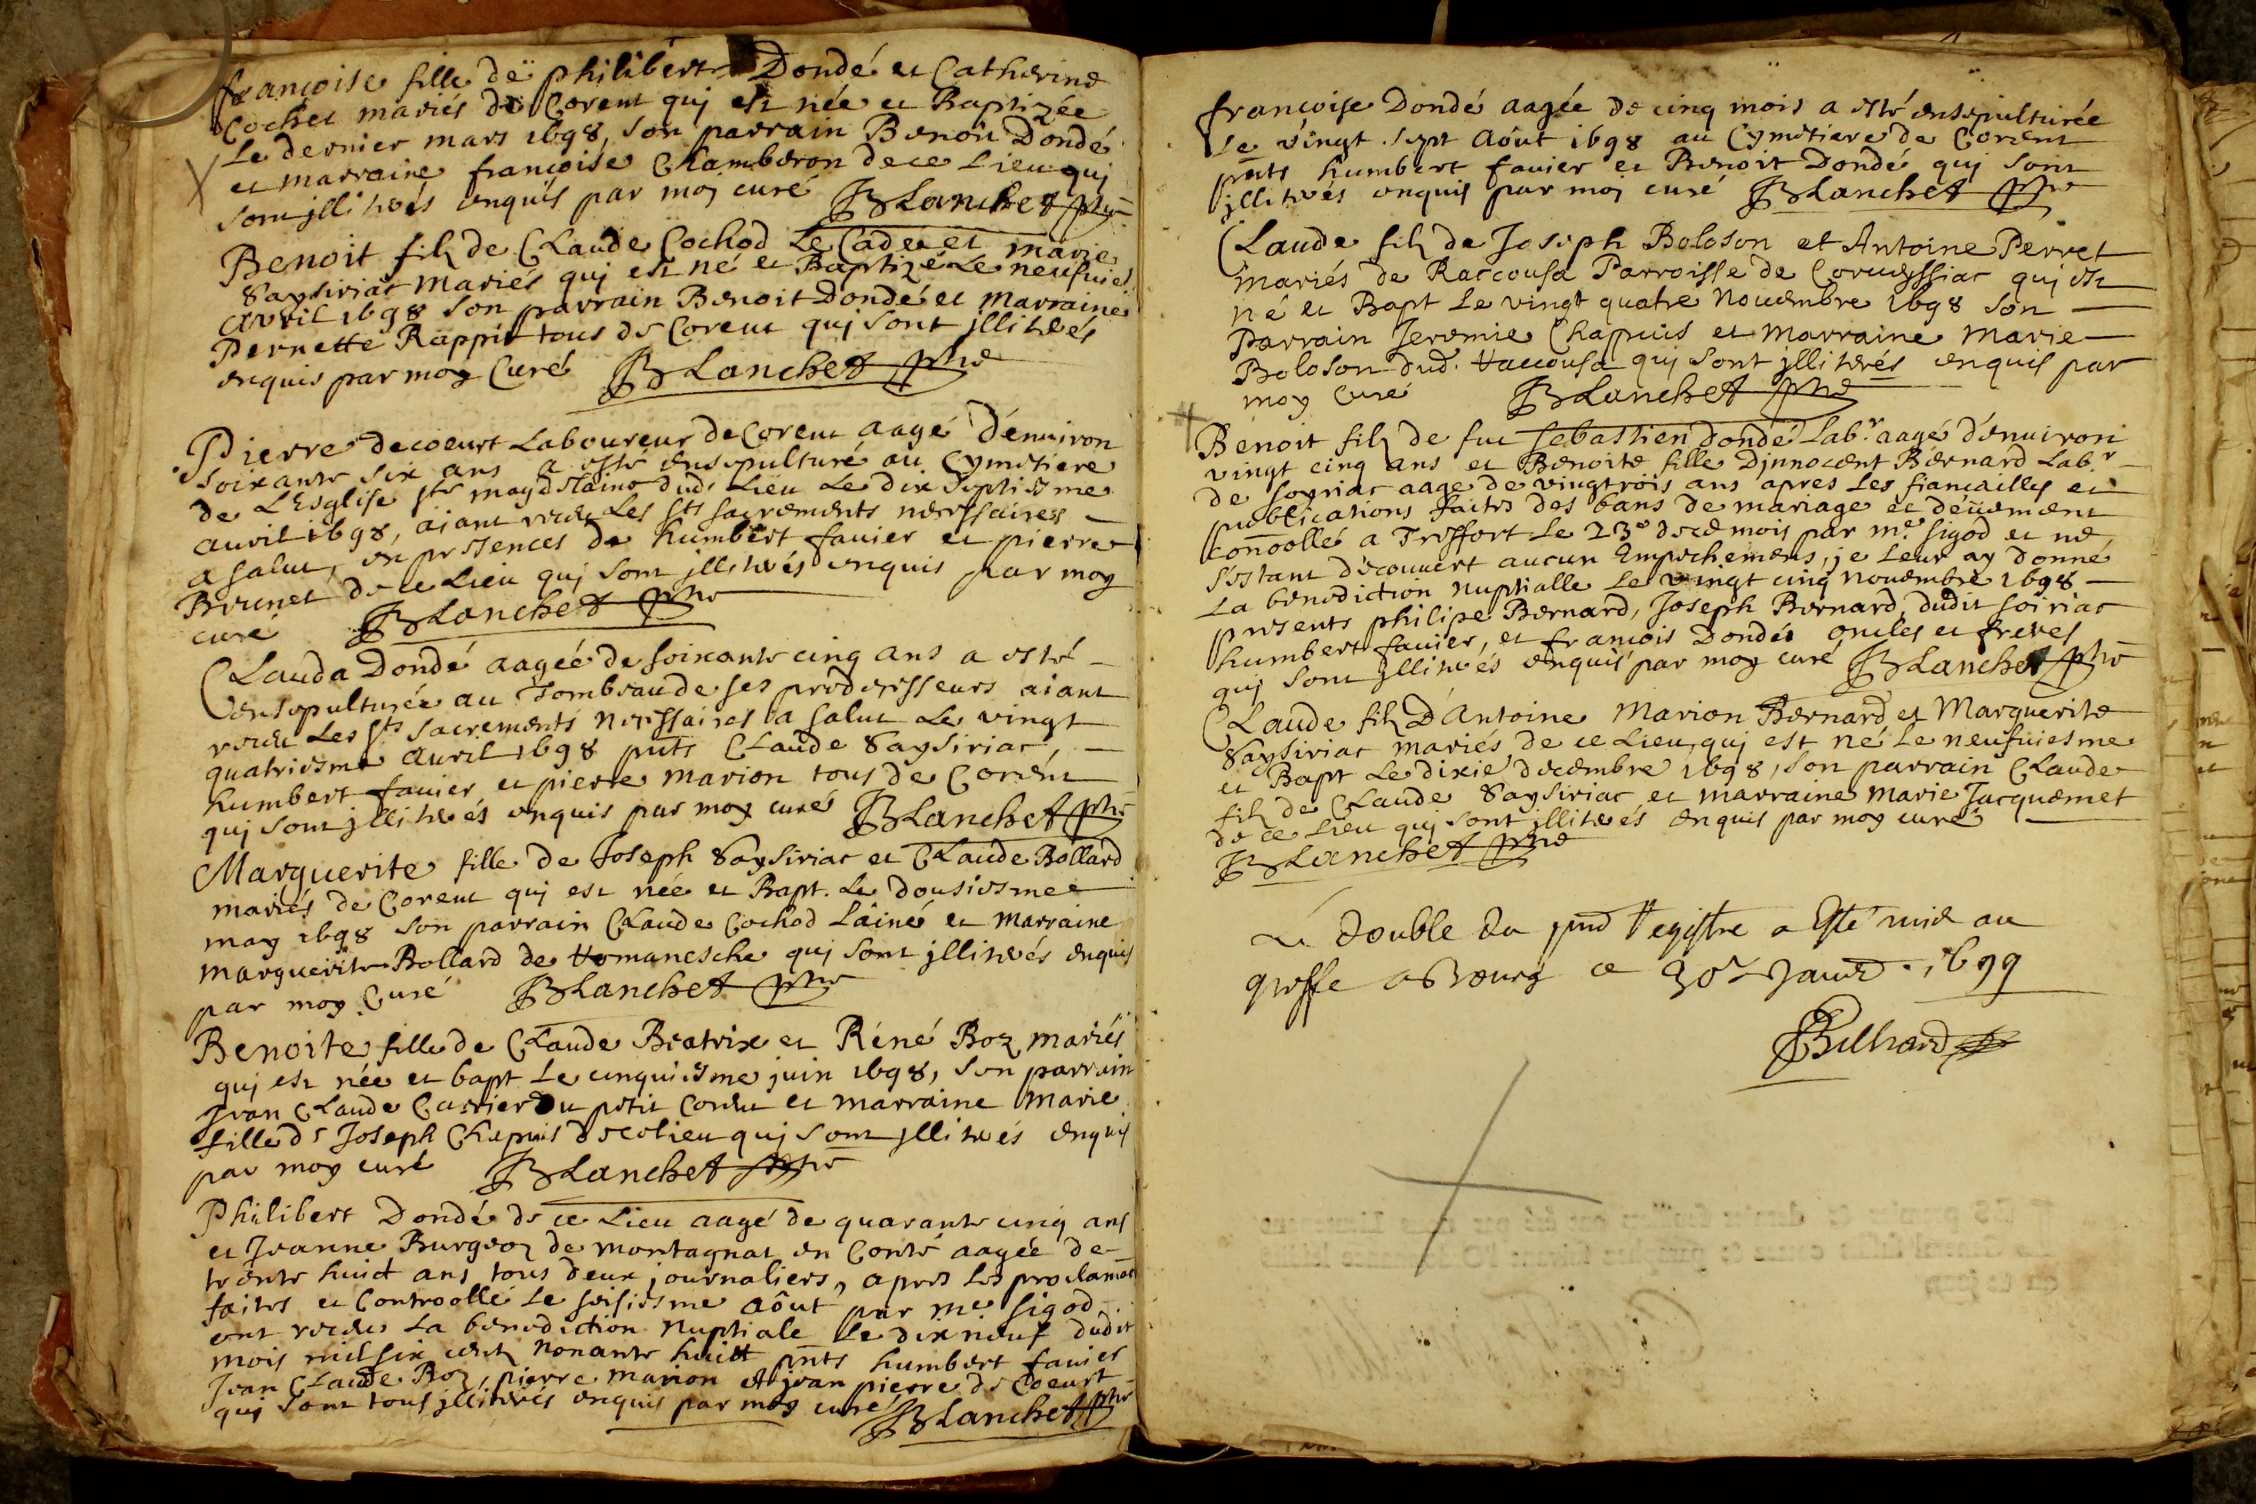 françoise fille de philibert Dondé et Catherine
Cochet mariés de Corent qui est née et Baptizée
Le dernier mars 1698, son parrain Benoit Dondé
et marraine françoise Chamberon de ce Lieu qui
sont jlliterés enquis par moy curé BLanchet ptre
Benoit filz de CLaude Cochod Le Cadet et marie
Saysiriac mariés qui est né et Baptizé Le neufuies
avril 1698 son parrain Benoit Dondé et Marraine
Pernette Rappit tous de Corent qui sont jlliterés
enquis par moy Curé BLanchet ptre
Pierre decoeurt Laboureur de Corent aagé d'enuiron
soixante six ans a esté ensepulturé au Cymetiere
de L'Esglise ste magdelaine dud. Lieu Le dix septiesme
auril 1698, aiant receu Les sts sacrements necessaires
a salut, en presences de humbert fauier et pierre
Brunet de ce Lieu qui sont jlliterés enquis par moy
curé BLanchet ptre
CLauda Dondé aagée de soixante cinq ans a esté
ensepulturée au Tombeau de ses predecesseurs aiant
receu Les sts sacrements necessaires a salut Le vingt
quatriesme auril 1698 pnts CLaude Saysiriac,
humbert fauier et pierre marion tous de Corent
qui sont jlliterés enquis par moy curé BLanchet ptre
Marguerite fille de Joseph Saysiriac et CLaude Bollard
mariés de Corent qui est née et Bapt. Le dousiesme
may 1698 son parrain CLaude Cochod L'ainé et marraine
marguerite Bollard de Romanesche qui sont jlliterés enquis
par moy Curé BLanchet ptre
Benoite fille de CLaude Beatrix et Réné Boz mariés
qui est née et bapt Le cinquiesme juin 1698, son parrain
Jean CLaude Carrier Du petit Corent et marraine marie
fille de Joseph Chapuis de ce lieu qui sont jlliterés enquis
par moy curé BLanchet ptre
Philibert Dondé de ce Lieu aagé de quarante cinq ans
et Jeanne Burgeoz de montagnat en Conté aagée de
trente huict ans tous deux journaliers, apres les proclamaõ
faites et Controollé Le seisiesme aôut par me sigod
ont receu La benediction Nuptiale Le dix neuf dudit
mois mil six centz nonante huict pnts humbert fauier
Jean CLaude Boz, pierre marion et jean pierre de Coeurt
qui sont tous jlliterés enquis par moy curé BLanchet ptre
françoise Dondé aagée de cinq mois a esté ensepulturée
Le vingt sept Aôut 1698 au Cymetiere de Corent
pnts humbert fauier et Benoit Dondé qui sont
jlliterés enquis par moy curé BLanchet ptre
CLaude filz de Joseph Boloson et Antoine Perret
mariés de Raccousa Parroisse de Corueyssiac qui est
né et Bapt Le vingt quatre Nouembre 1698 son
Parrain Jeremie Chapuis et Marraine Marie
Boloson dud. Raccousa qui sont jlliterés enquis par
moy Curé BLanchet ptre
Benoit filz de fut sebastien dondé Labr. aagé d'enuiron
vingt cinq ans et Benoite fille Djnnocent Bernard Labr
de soyriac aage de vingtrois ans apres Les fiancailles et
publications faites des bans de mariage et deüement
conõollé a Treffort Le 23e dece mois par me sigod et ne
s'estant decouuert aucun Empechement, je Leur ay donné
La benediction nuptialle Le vingt cinq nouembre 1698
presents philipe Bernard, Joseph Bernard dudit soiriac
humbert fauier, et francois Dondés oncles et freres
qui sont jlliterés enquis par moy curé BLanchet ptre
CLaude filz D'Antoine Marion Bernard et Marguerite
Saysiriac mariés de ce Lieu, qui est né Le neufuiesme
et Bapt Le dixie decembre 1698, son parrain CLaude
filz de CLaude Saysiriac et marraine marie Jacquemet
de ce Lieu qui sont jlliterés enquis par moy curé
BLanchet ptre
Le double du pnd Registre a esté mid au
greffe a Bourg ce 30e Januier 1699